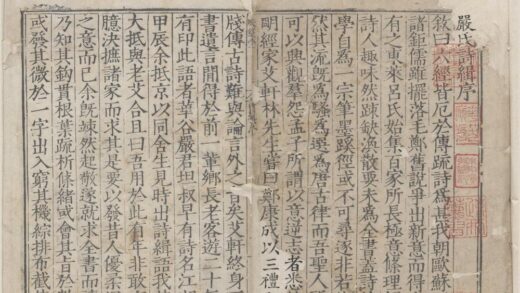 嚴氏詩緝序
敘曰六經皆厄於傳疏詩爲甚我朝歐蘇
諸鉅儒雖擺落毛鄭舊說爭出新意而得
有之東萊呂氏始集百家所長極意條理
詩人趣味然疎缺渙散要未爲全書蓋詩
學自爲一宗筆墨蹊徑或不可尋逐非若
然其流旣爲騷爲選爲唐古律而吾聖人
可以興觀羣怨孟子所謂以意逆志者悉
明經家艾軒林先生嘗曰鄭康成以三禮
牋傳古詩難與論言外之旨矣艾軒終身
書遺言間得於前一輩鄉長老客遊二十
有印此語者華谷嚴君坦叔早有詩名江
甲辰余抵京以同舍生見時出詩緝語我
大抵與老艾合且曰吾用於此有年非敢
臆決摭諸家而求其是要以發昔人優柔
之意而已余旣竦然起敬遂就求全書而
乃知其鉤貫根葉疏析條緒或會其旨於
或發其微於一字出入窮其機綜排布截